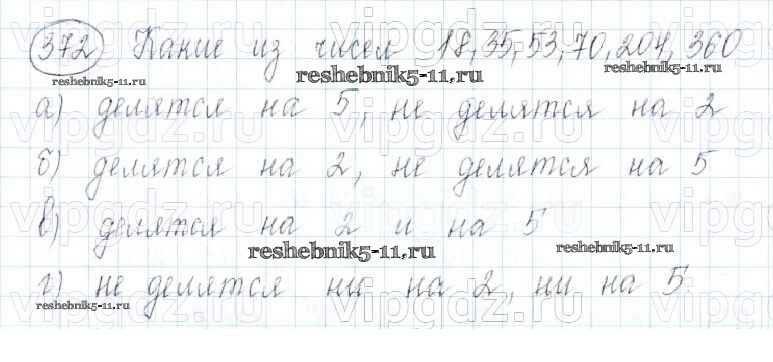 372 Какие из чисел 18, 35, 53, 70, 204, 360
reshebnik5-11.ru reshebnik5-11.ru reshebnik5-11.ru
а) делятся на 5, не делятся на 2
б) делятся на 2, не делятся на 5
в) делятся на 2 и на 5
reshebnik5-11.ru reshebnik5-11.ru
г) не делятся ни на 2, ни на 5.
reshebnik5-11.ru reshebnik5-11.ru